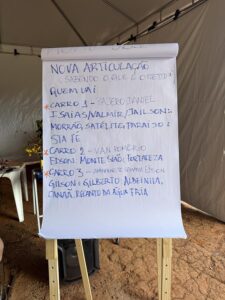 NOVA ARTICULAÇÃO
SABENDO O QUE É O
QUEM VAI
CARRO 1 - DANIEL
ISAIAS/VALMIR/JAILSON:
MORRÃO, SATÉLITE, PARAISO E
STA FÉ
CARRO 2 - VAN ROMÉRIO
EDSON. MONTE SIÃO, FORTALEZA
CARRO 3 -
GILSON E GILBERTO
CANAÃ, RECANTO DA ÁGUA FRIA